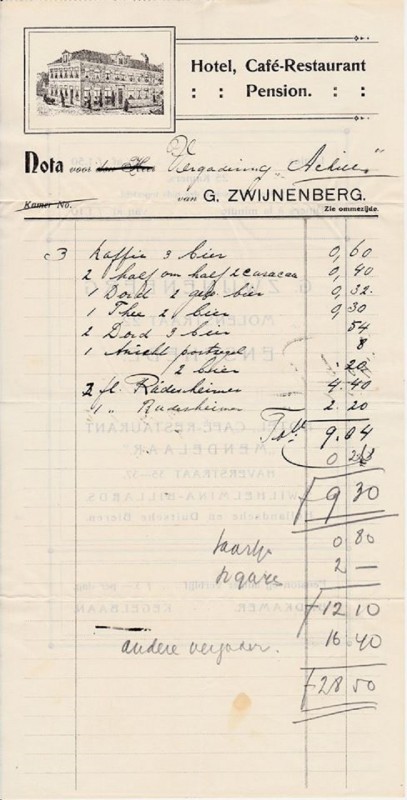 Hotel, Café-Restaurant
: : Pension. : :
Nota voor den Heer De Vergadering „Achil"
Kamer No. van G. ZWIJNENBERG.
Zie ommezijde.
3 Koffie 3 bier 0,60
2 half om half 2 curacau 0,40
1 Dord 2 glas bier 0,32.
1 Thee 2 bier 0,30
2 Dord 3 bier 54
1 8
2 bier 20
2 fl. Rüdesheimer 4.40
1 " Rudesheimer 2.20
9.04
0
f 9 30
kaartje 0 80
sigaren 2 —
f 12 10
andere vergader. 16 40
f 28 50